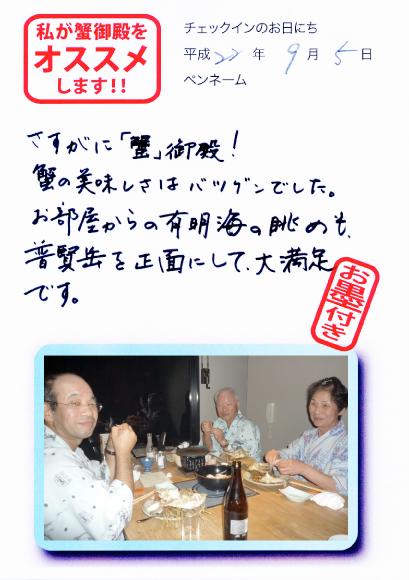 私が蟹御殿を
オススメ
します!!
チェックインのお日にち
平成 22 年 9 月 5 日
ペンネーム
さすがに「蟹」御殿!
蟹の美味しさはバツグンでした。
お部屋からの有明海の眺めも、
普賢岳を正面にして、大満足
です。
お墨付き